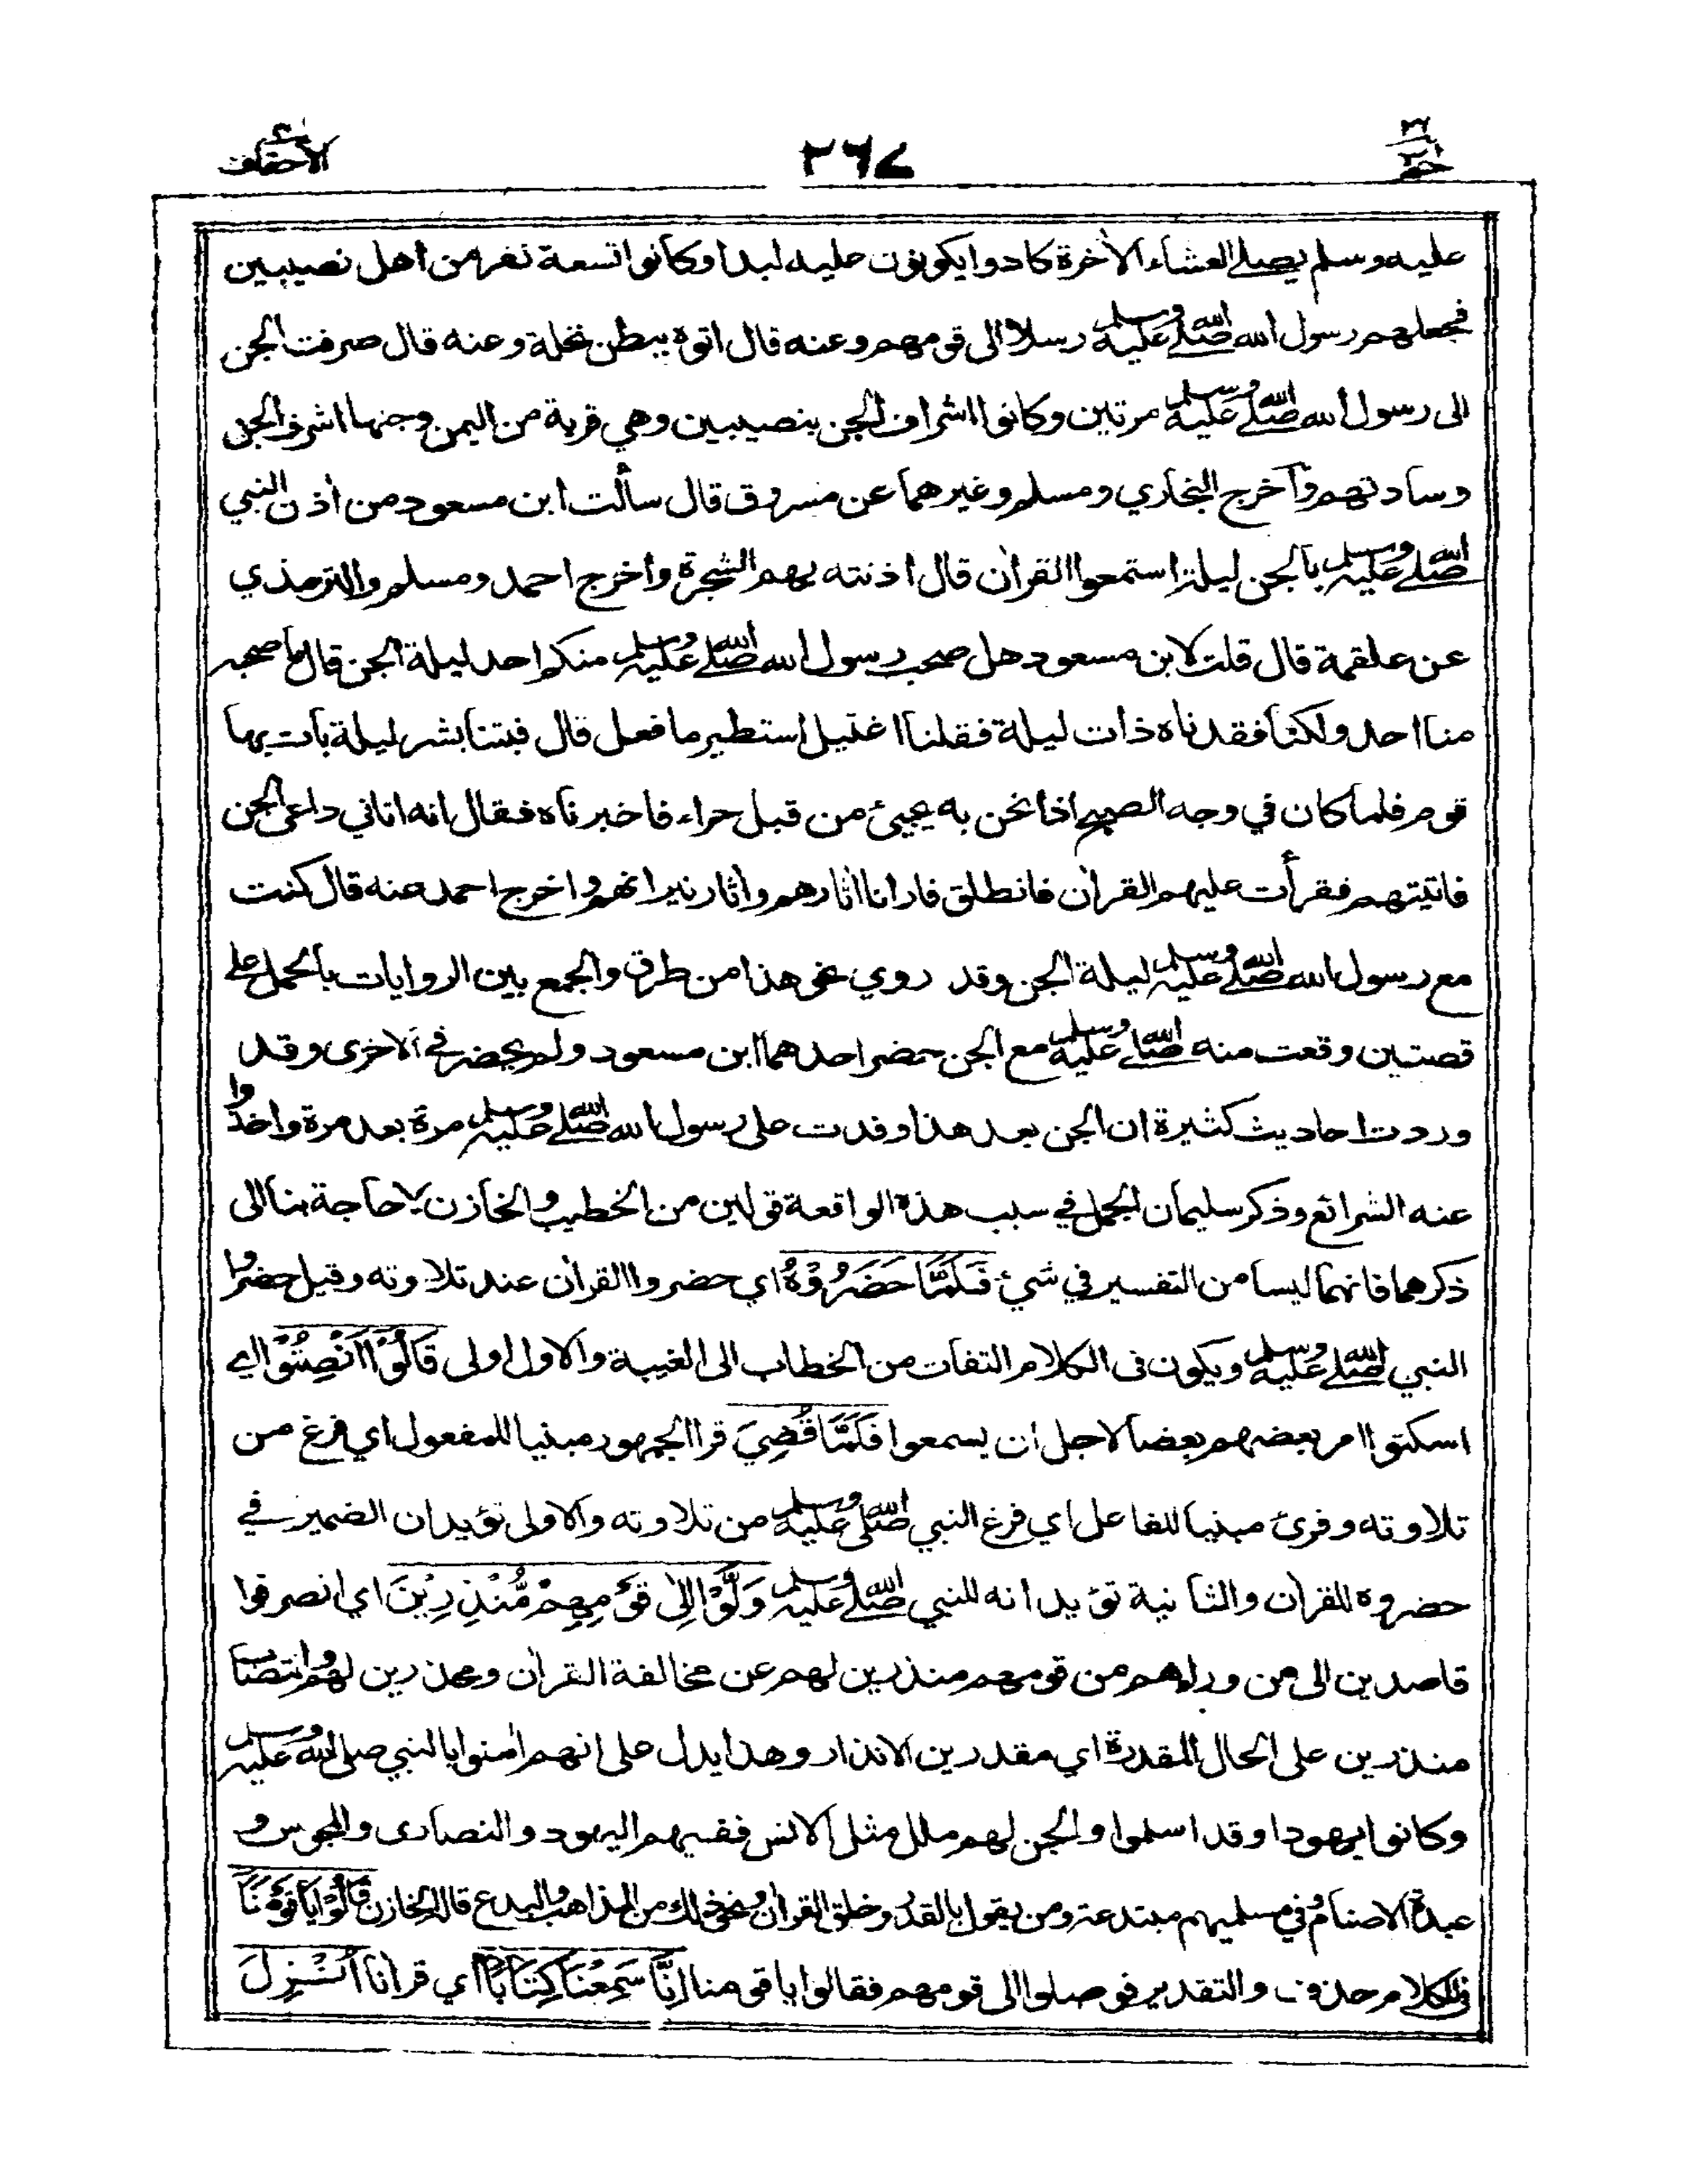 حم ٢٦
٣٦٧
الأحقاف
عليه وسلم يصلي العشاء الأخرة كادوا يكونون عليه لبدا وكانوا تسعة نفر من اهل نصيبين
فجعلهم رسول الله صلى الله عليه وسلم رسلا الى قومهم وعنه قال اتوه ببطن نخلة وعنه قال صرفت الجن
الى رسول الله صلى الله عليه وسلم مرتين وكانوا اشراف الجن بنصيبين وهي قرية من اليمن وجنها اشرف الجن
وسادتهم وأخرج البخاري ومسلم وغيرهما عن مسروق قال سألت ابن مسعود من أذن النبي
صلى الله عليه وسلم بالجن ليلة استمعوا القرأن قال أذنته بهم الشجرة وأخرج احمد ومسلم والترمذي
عن علقمة قال قلت لابن مسعود هل صحب رسول الله صلى الله عليه وسلم منكم احد ليلة الجن قال ما صحبه
منا احد ولكنا فقدناه ذات ليلة فقلنا اغتيل استطير ما فعل قال فبتنا بشر ليلة بات بها
قوم فلما كان في وجه الصبح اذا نحن به يجيئ من قبل حراء فاخبرناه فقال انه اتاني داعي الجن
فاتيتهم فقرأت عليهم القرأن فانطلق فارانا أثارهم وأثار نيرانهم واخرج احمد عنه قال كنت
مع رسول الله صلى الله عليه وسلم ليلة الجن وقد روي نحو هذا من طرق والجمع بين الروايات بالحمل على
قصتين وقعت منه صلى الله عليه وسلم مع الجن حضر احدهما ابن مسعود ولم يحضر في الاخرى وقد
وردت احاديث كثيرة ان الجن بعد هذا وفدت على رسول الله صلى الله عليه وسلم مرة بعد مرة واخذوا
عنه الشرائع وذكر سليمان الجمل في سبب هذه الواقعة قولين من الخطيب والخازن لا حاجة بنا الى
ذكرهما فانهما ليسا من التفسير في شيئ فَلَمَّا حَضَرُوْهُ اي حضروا القرأن عند تلاوته وقيل حضروا
النبي صلى الله عليه وسلم ويكون في الكلام التفات من الخطاب الى الغيبة والاول اولى قَالُوْا اَنْصِتُوْا اي
اسكتوا امر بعضهم بعضا لاجل ان يسمعوا فَلَمَّا قُضِيَ قرا الجمهور مبنيا للمفعول اي فرغ من
تلاوته وقرئ مبنيا للفاعل اي فرغ النبي صلى الله عليه وسلم من تلاوته والاولى تؤيد ان الضمير في
حضروه للقرأن والثانية تؤيد انه للنبي صلى الله عليه وسلم وَلَّوْا اِلٰى قَوْمِهِمْ مُّنْذِرِيْنَ اي انصرفوا
قاصدين الى من وراءهم من قومهم منذرين لهم عن مخالفة القرأن ومحذرين لهم وانتصاب
منذرين على الحال المقدرة اي مقدرين الانذار وهذا يدل على انهم أمنوا بالنبي صلى الله عليه وسلم
وكانوا يهودا وقد اسلموا والجن لهم ملل مثل الانس ففيهم اليهود والنصارى والمجوس و
عبدة الاصنام وفي مسلميهم مبتدعة ومن يقول بالقدر وخلق القرأن ونحو ذلك من المذاهب والبدع قاله الخازن قَالُوْا يَا قَوْمَنَا
في الكلام حذف والتقدير فوصلوا الى قومهم فقالوا يا قومنا اِنَّا سَمِعْنَا كِتَابًا اي قرأنا اُنْزِلَ